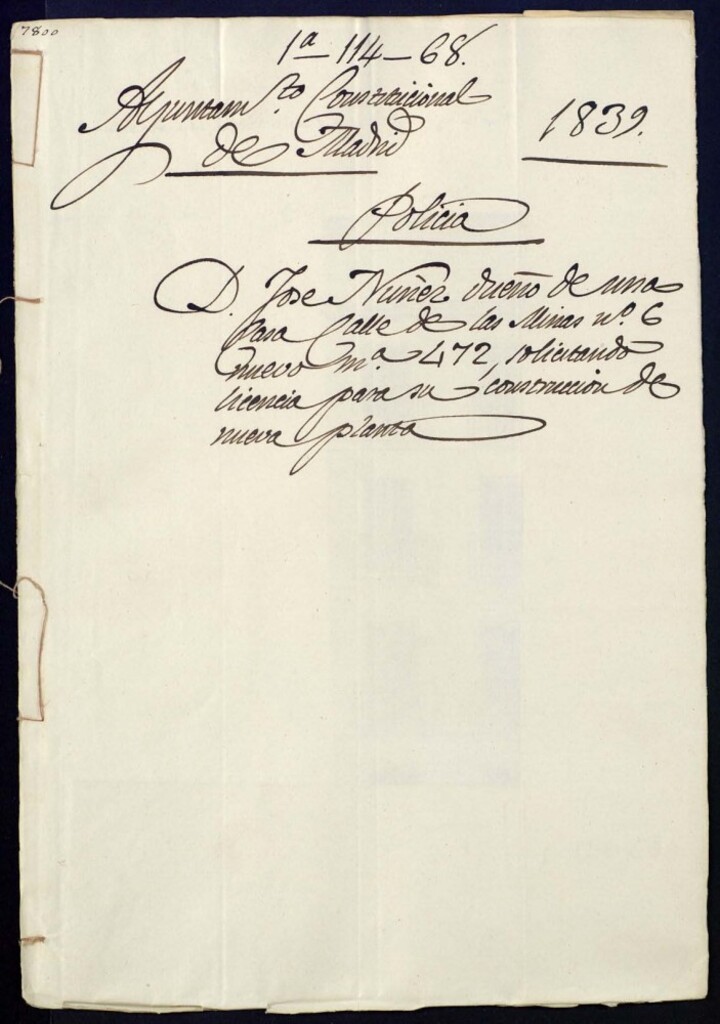 7800
1ª-114-68.
Ayuntam.to Constitucional
de Madrid
1839.
Policia
D. Jose Nuñez dueño de una
Casa Calle de las Minas nº. 6
nuevo m.ª 472, solicitando
licencia para su construccion de
nueva planta